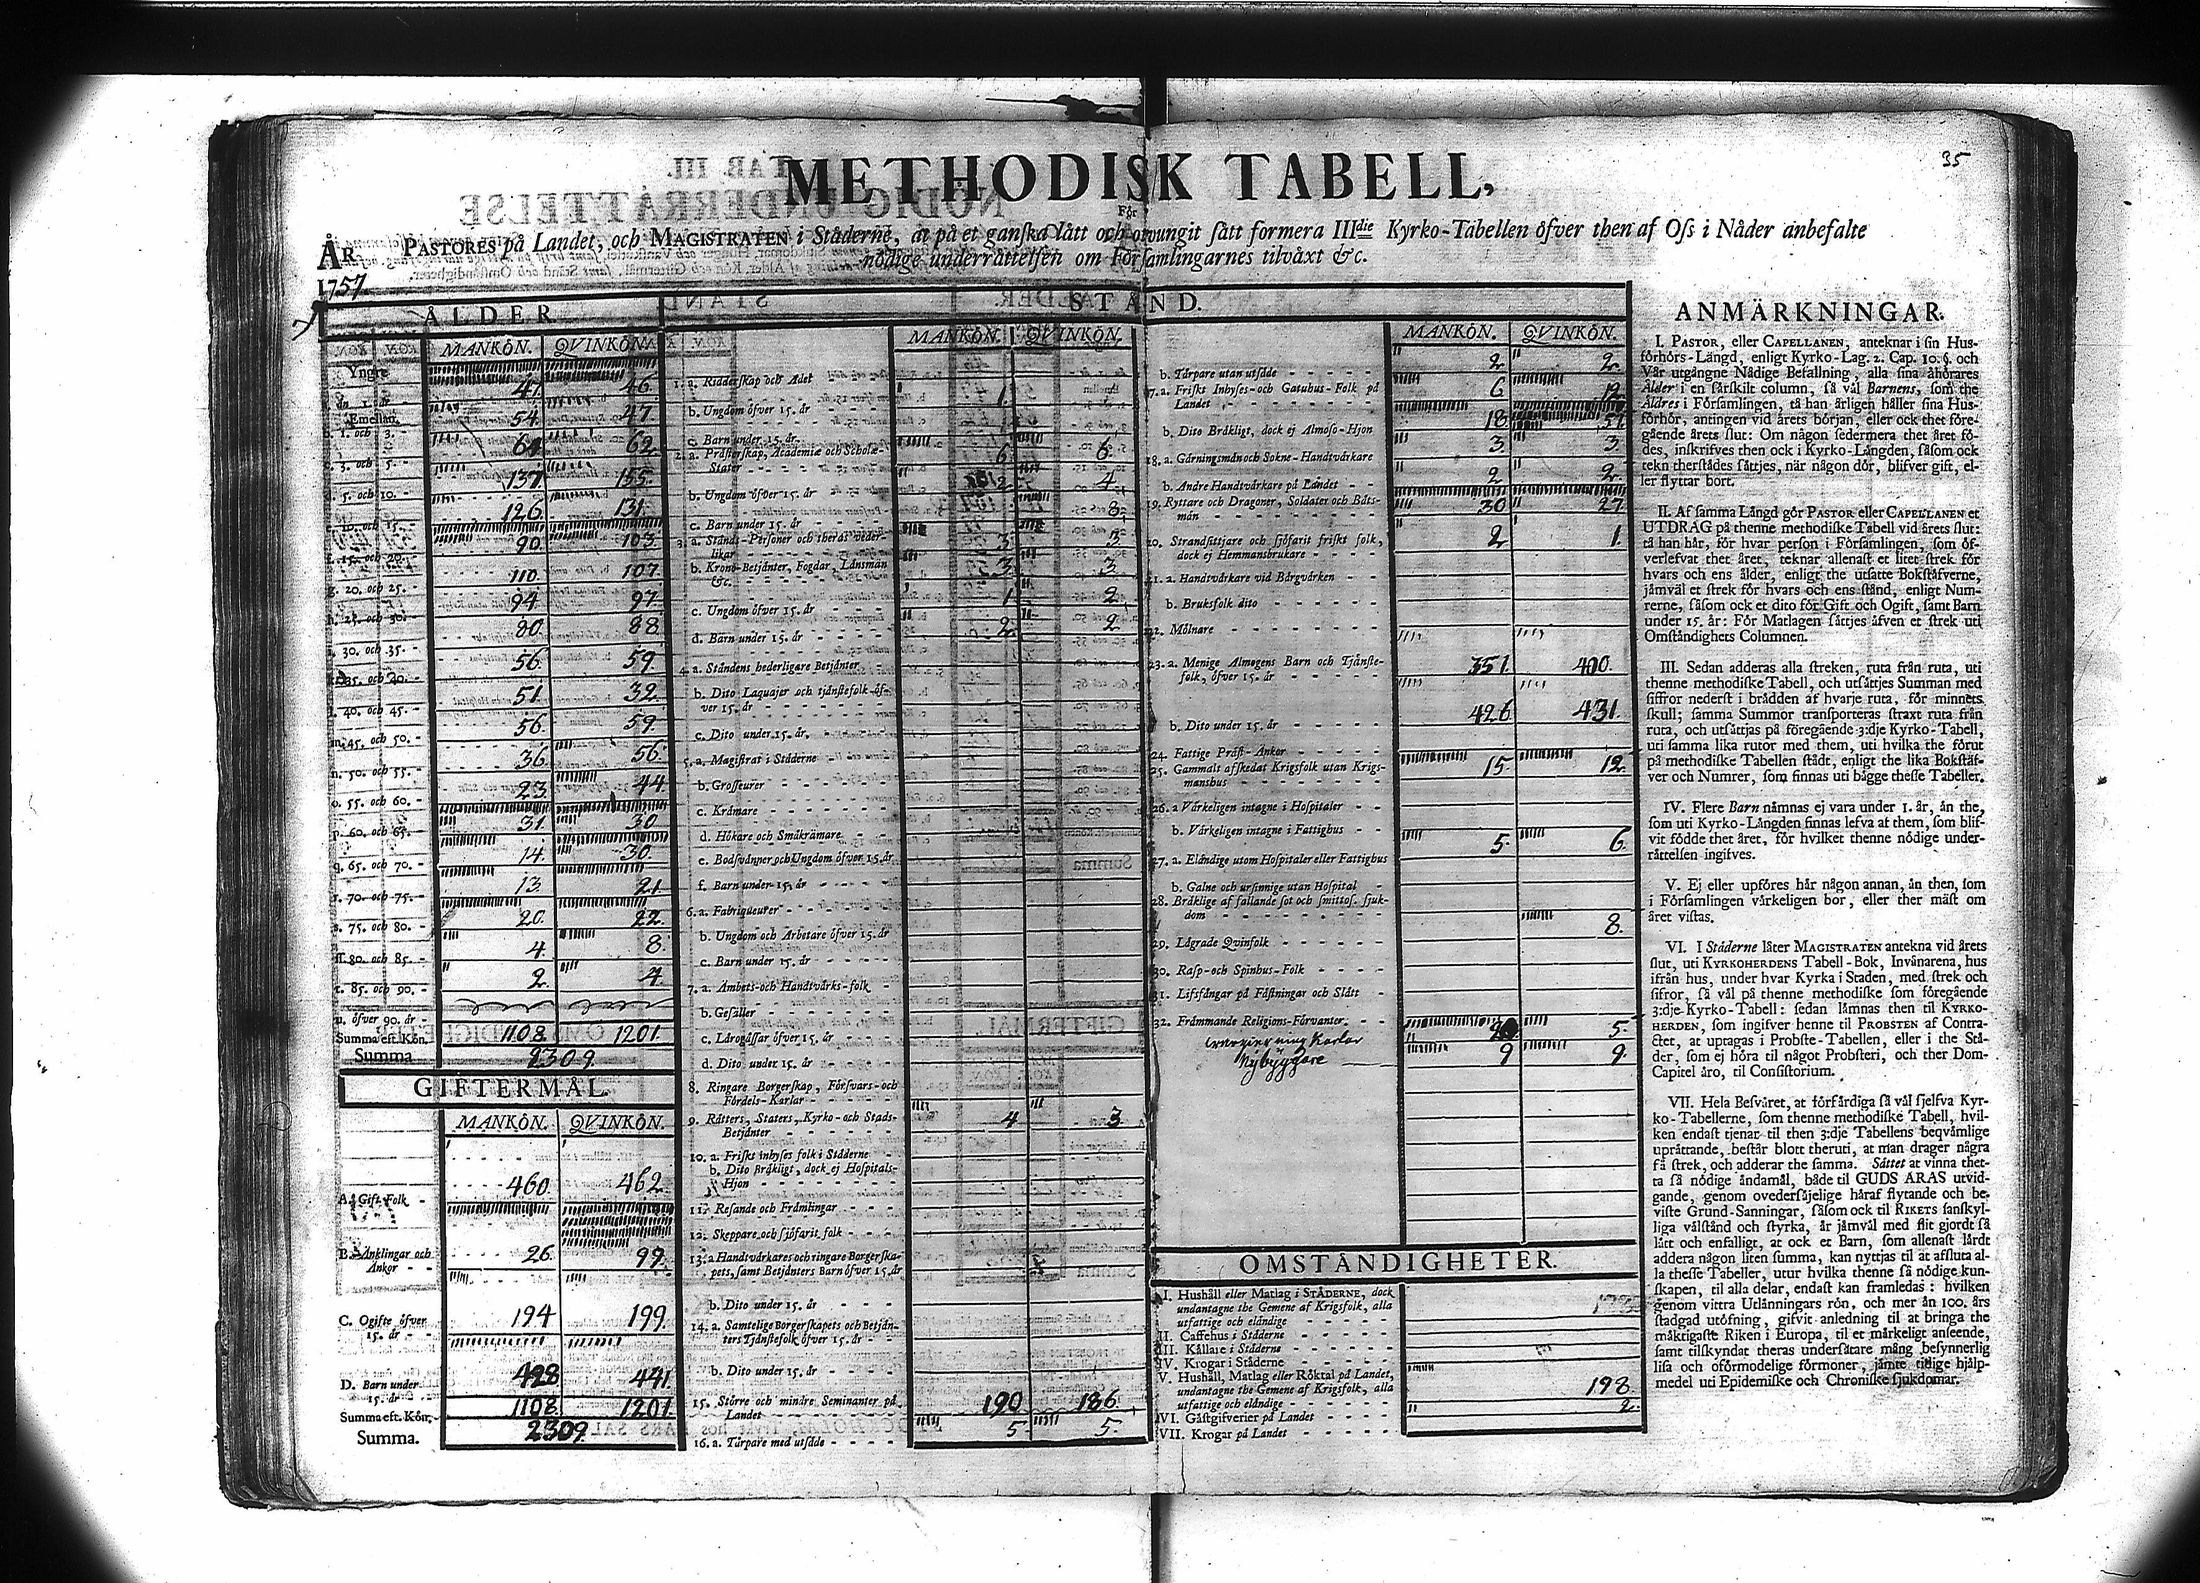 35
METHODISK TABELL,
För
PASTORES på Landet, och MAGISTRATEN i Städerne, at på et ganska lätt och otvungit sätt formera IIIdie Kyrko-Tabellen öfver then af Oss i Nåder anbefalte
nödige underrättelsen om Församlingarnes tilväxt &c.
ÅR
1757.
ÅLDER
MANKÖN. QVINKÖN.
Yngre än 1. år 47. 46.
Emellan
b. 1. och 3. 54. 47
c. 3. och 5. 61 62
d. 5. och 10. 137 155.
126 131.
90. 103.
g. 20. och 25. 110. 107.
h. 25. och 30. 94 97.
i. 30. och 35. 80. 88
35. och 40. 56. 59
l. 40. och 45. 51. 32
m. 45. och 50. 56. 59.
n. 50. och 55. 36. 56.
o. 55. och 60. 23. 44
p. 60. och 65. 31. 30
q. 65. och 70. 14. 30.
r. 70. och 75. 13. 21.
s. 75. och 80. 20. 22.
ss. 80. och 85. 4. 8.
t. 85. och 90. 2. 4.
u. öfver 90. år
Summa eft. Kön. 1108. 1201.
Summa 2309.
GIFTERMÅL.
MANKÖN. QVINKÖN.
A. Gift Folk 460. 462
B. Änklingar och Änkor 26. 99.
C. Ogifte öfver 15. år 194 199.
D. Barn under 15. år 428 441.
Summa eft. Kön. 1108. 1201.
Summa. 2309.
STÅND.
MANKÖN. QVINKÖN.
1. a. Ridderskap och Adel
b. Ungdom öfver 15. år 1.
c. Barn under 15. år
2. a. Prästerskap, Academiæ och Scholæ-
Stater 6 6
b. Ungdom öfver 15. år 2 4
c. Barn under 15. år 8
3. a. Stånds-Personer och theras vederlikar 3. 3
b. Krono-Betjänter, Fogdar, Länsmän
&c. 3 3
c. Ungdom öfver 15. år 1 2
d. Barn under 15. år 2 2
4. a. Ståndens hederligare Betjänter
b. Dito Laquajer och tjänstefolk öfver 15. år
c. Dito under 15. år.
5. a. Magistrat i Städerne
b. Grosseurer
c. Krämare
d. Hökare och Småkrämare
e. Bodsvänner och Ungdom öfver 15. år
f. Barn under 15. år
6. a. Fabriqueurer
b. Ungdom och Arbetare öfver 15. år
c. Barn under 15. år
7. a. Ämbets- och Handtvärks-folk
b. Gesäller
c. Lärogåssar öfver 15. år
d. Dito under 15. år
8. Ringare Borgerskap, Försvars- och
Fördels-Karlar
9. Rätters, Staters, Kyrko- och Stads-
Betjänter 4 3.
10. a. Friskt inhyses folk i Städerne
b. Dito Bräkligt, dock ej Hospitals-
Hjon
11. Resande och Främlingar
12. Skeppare och sjöfarit folk
13. a. Handtvärkares och ringare Borgerska-
pets, samt Betjänters Barn öfver 15. år
b. Dito under 15. år
14. a. Samtelige Borgerskapets och Betjän-
ters Tjänstefolk öfver 15. år
b. Dito under 15. år
15. Större och mindre Seminanter på
Landet 190 186
16. a. Tårpare med utsäde 5. 5.
MANKÖN. QVINKÖN.
b. Tårpare utan utsäde 2 2.
17. a. Friskt Inhyses- och Gatuhus-Folk på
Landet 6 12
b. Dito Bräkligt, dock ej Almoso-Hjon 18. 57
18. a. Gärningsmän och Sokne-Handtvärkare 3. 3.
b. Andre Handtvärkare på Landet 2 2.
19. Ryttare och Dragoner, Soldater och Båts-
män 30 27
20. Strandsittjare och sjöfarit friskt folk,
dock ej Hemmansbrukare 2 1.
21. a. Handtvärkare vid Bärgvärken
b. Bruksfolk dito
22. Mölnare
23. a. Menige Almogens Barn och Tjänste-
folk, öfver 15. år 351. 400.
b. Dito under 15. år 426 431.
24. Fattige Präst-Änkor
25. Gammalt afskedat Krigsfolk utan Krigs-
manshus 15. 12.
26. a Värkeligen intagne i Hospitaler
b. Värkeligen intagne i Fattighus 5. 6.
27. a. Eländige utom Hospitaler eller Fattighus
b. Galne och ursinnige utan Hospital
28. Bräklige af fallande sot och smittos. sjuk-
dom 8.
29. Lägrade Qvinfolk
30. Rasp- och Spinhus-Folk
31. Lifsfångar på Fästningar och Slätt
32. Främmande Religions-Förvanter 5.
Karlar
Nybyggare 9 9.
OMSTÄNDIGHETER.
I. Hushåll eller Matlag i STÄDERNE, dock
undantagne the Gemene af Krigsfolk, alla
utfattige och eländige
II. Caffehus i Städerne
III. Källare i Städerne
IV. Krogar i Städerne
V. Hushåll, Matlag eller Röktal på Landet,
undantagne the Gemene af Krigsfolk, alla
utfattige och eländige 198
VI. Gästgifverier på Landet 2.
VII. Krogar på Landet
ANMÄRKNINGAR.
I. PASTOR, eller CAPELLANEN, anteknar i sin Hus-
förhörs-Längd, enligt Kyrko-Lag. 2. Cap. 10. §. och
Vår utgångne Nådige Befallning, alla sina åhörares
Ålder i en särskilt column, så väl Barnens, som the
Äldres i Församlingen, tå han årligen håller sina Hus-
förhör, antingen vid årets början, eller ock thet före-
gående årets slut: Om någon sedermera thet året fö-
des, inskrifves then ock i Kyrko-Längden, såsom ock
tekn therstädes sättjes, när någon dör, blifver gift, el-
ler flyttar bort.
II. Af samma Längd gör PASTOR eller CAPELLANEN et
UTDRAG på thenne methodiske Tabell vid årets slut:
tå han här, för hvar person i Församlingen, som öf-
verlefvat thet året, teknar allenast et litet strek för
hvars och ens ålder, enligt the utsatte Bokstäfverne,
jämväl et strek för hvars och ens stånd, enligt Num-
rerne, såsom ock et dito för Gift och Ogift, samt Barn
under 15. år: För Matlagen sättjes äfven et strek uti
Omständighets Columnen.
III. Sedan adderas alla streken, ruta från ruta, uti
thenne methodiske Tabell, och utsättjes Summan med
siffror nederst i brädden af hvarje ruta, för minnets
skull; samma Summor transporteras straxt ruta från
ruta, och utsättjas på föregående 3:dje Kyrko-Tabell,
uti samma lika rutor med them, uti hvilka the förut
på methodiske Tabellen stådt, enligt the lika Bokstäf-
ver och Numrer, som finnas uti bägge thesse Tabeller.
IV. Flere Barn nämnas ej vara under 1. år, än the,
som uti Kyrko-Längden finnas lefva af them, som blif-
vit födde thet året, för hvilket thenne nödige under-
rättelsen ingifves.
V. Ej eller upföres här någon annan, än then, som
i Församlingen värkeligen bor, eller ther mäst om
året vistas.
VI. I Städerne låter MAGISTRATEN antekna vid årets
slut, uti KYRKOHERDENS Tabell-Bok, Invånarena, hus
ifrån hus, under hvar Kyrka i Staden, med strek och
sifror, så väl på thenne methodiske som föregående
3:dje Kyrko-Tabell: sedan lämnas then til KYRKO-
HERDEN, som ingifver henne til PROBSTEN af Contra-
ctet, at uptagas i Probste-Tabellen, eller i the Stä-
der, som ej höra til något Probsteri, och ther Dom-
Capitel äro, til Consistorium.
VII. Hela Besväret, at förfärdiga så väl sjelfva Kyr-
ko-Tabellerne, som thenne methodiske Tabell, hvil-
ken endast tjenar til then 3:dje Tabellens beqvämlige
uprättande, består blott theruti, at man drager några
få strek, och adderar the samma. Sättet at vinna thet-
ta så nödige ändamål, både til GUDS ÄRAS utvid-
gande, genom ovedersäjelige häraf flytande och be-
viste Grund-Sanningar, såsom ock til RIKETS sanskyl-
liga välstånd och styrka, är jämväl med flit gjordt så
lätt och enfalligt, at ock et Barn, som allenast lärdt
addera någon liten summa, kan nyttjas til at afsluta al-
la thesse Tabeller, utur hvilka thenne så nödige kun-
skapen, til alla delar, endast kan framledas: hvilken
genom vittra Utlänningars rön, och mer än 100. års
stadgad utöfning, gifvit anledning til at bringa the
mäktigaste Riken i Europa, til et märkeligt anseende,
samt tilskyndat theras undersåtare mång besynnerlig
lisa och oförmodelige förmoner, jämte tidige hjälp-
medel uti Epidemiske och Chroniske sjukdomar.